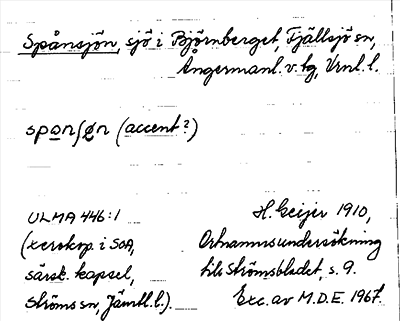 Spånsjön, sjö i Björnberget, Fjällsjö sn,
Ångermanl. v. tg, Vrnl. l.
spo̲nʃø̲n (accent?)
ULMA 446:1
(xerokop. i SOA,
särsk. kapsel,
Ströms sn, Jämtl. l.).
H. Geijer 1910,
Ortnamnsundersökning
till Strömsbladet, s. 9.
Exc. av M.D.E. 1967.